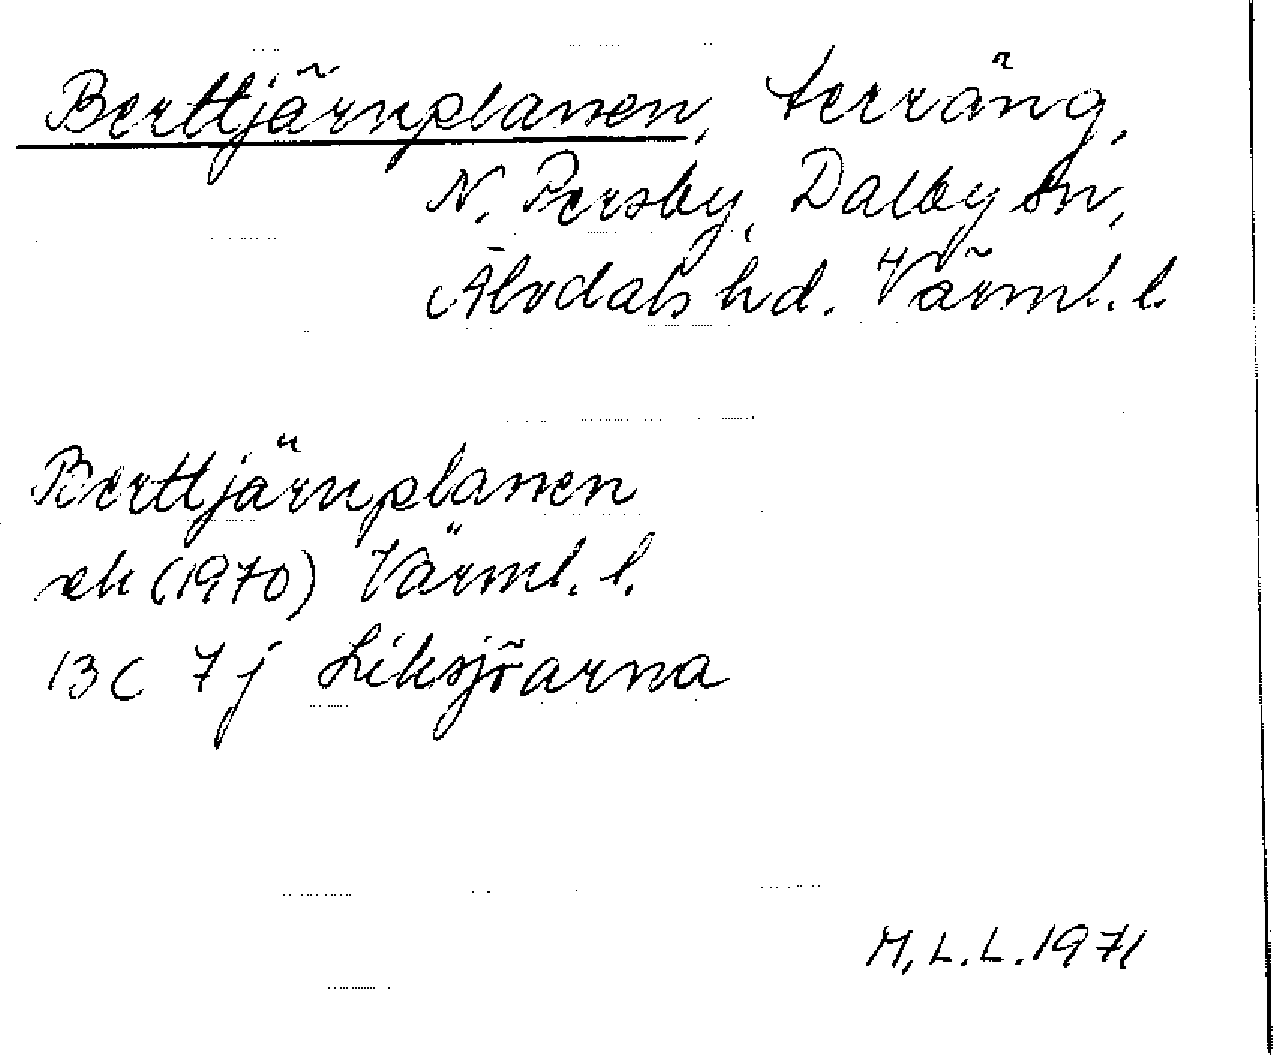 Berttjärnplanen, terräng,
N. Persby, Dalby sn,
Älvdals hd. Värml. l.
Berttjärnplanen
ek (1970) Värml. l.
13C 7j Liksjöarna
M.L.L. 1971